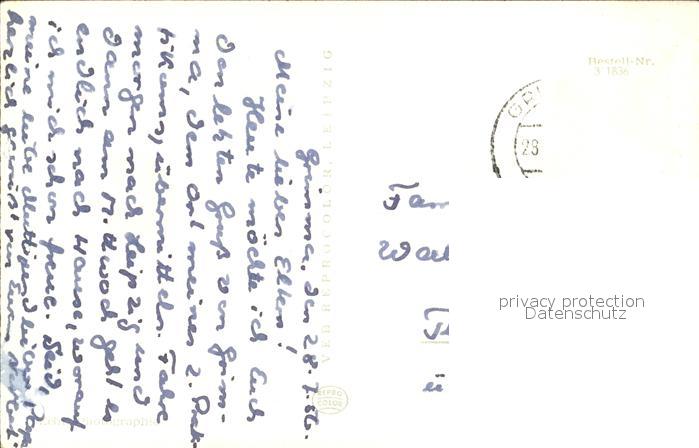 Grimma, den 28.7.66.
Meine lieben Eltern!
Heute möchte ich Euch
den letzten Gruß von Grim-
ma, dem Ort meines 2. Prak-
tikums, übermitteln. Fahre
morgen nach Leipzig und
dann am Mittwoch geht es
endlich nach Hause, worauf
ich mich schon freue. Seid,
meine liebe Mutti und lieber Papa
herzlich gegrüßt von
VEB REPROCOLOR, LEIPZIG
REPRO
COLOR
Echte Photographie
Bestell-Nr.
3 1836
GRI
28
Fam
privacy protection
Datenschutz